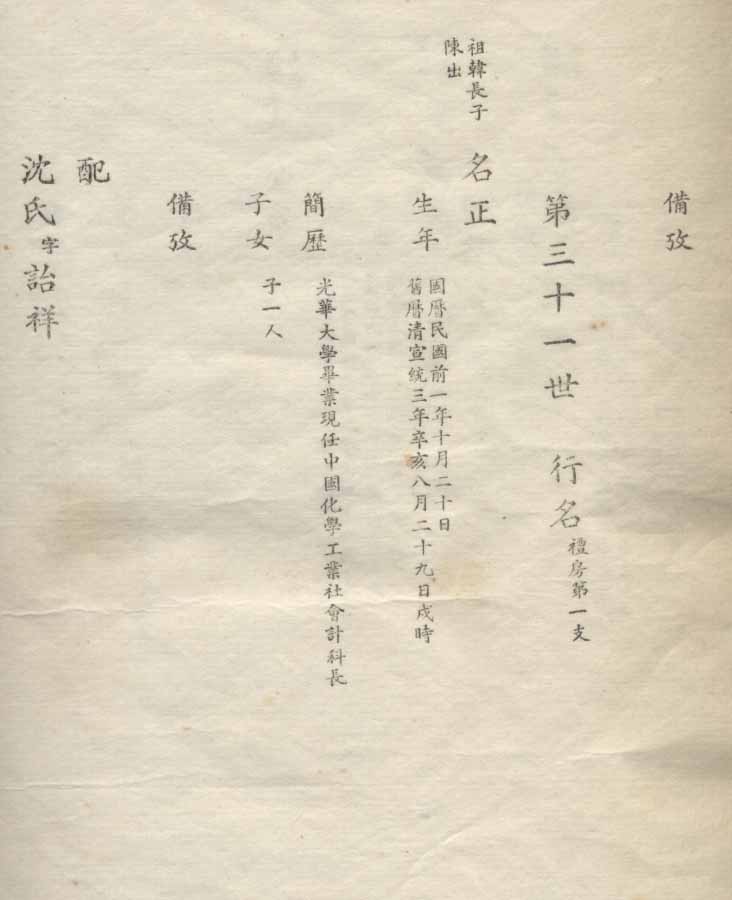 備攷
第三十一世 行名 禮房第一支
祖韓長子
陳出
名正
生年
國曆民國前一年十月二十日
舊曆清宣統三年辛亥八月二十九日戌時
簡歷
光華大學畢業現任中國化學工業社會計科長
子女
子一人
備攷
配
沈氏字詒祥